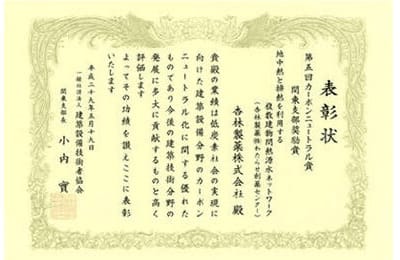 表彰状
第五回カーボンニュートラル賞
関東支部奨励賞
地中熱と排熱を利用する
複数建物間熱湧水ネットワーク
(杏林製薬㈱わたらせ創薬センター)
杏林製薬株式会社 殿
貴殿の業績は低炭素社会の実現に
向けた建築設備分野のカーボン
ニュートラル化に関する優れた
ものであり今後の建築技術分野の
発展に多大に貢献するものと高く
評価します
よってその功績を讃えここに表彰
いたします
平成二十九年五月十九日
一般社団法人 建築設備技術者協会
関東支部長 小内 實